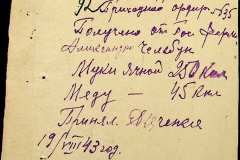 92 Приходный ордер №35
Получено от гос Ферм
Александро Челебун
Муки ячной 250 кил
Меду — 45 кил
Принял
19/VIII 43 год.